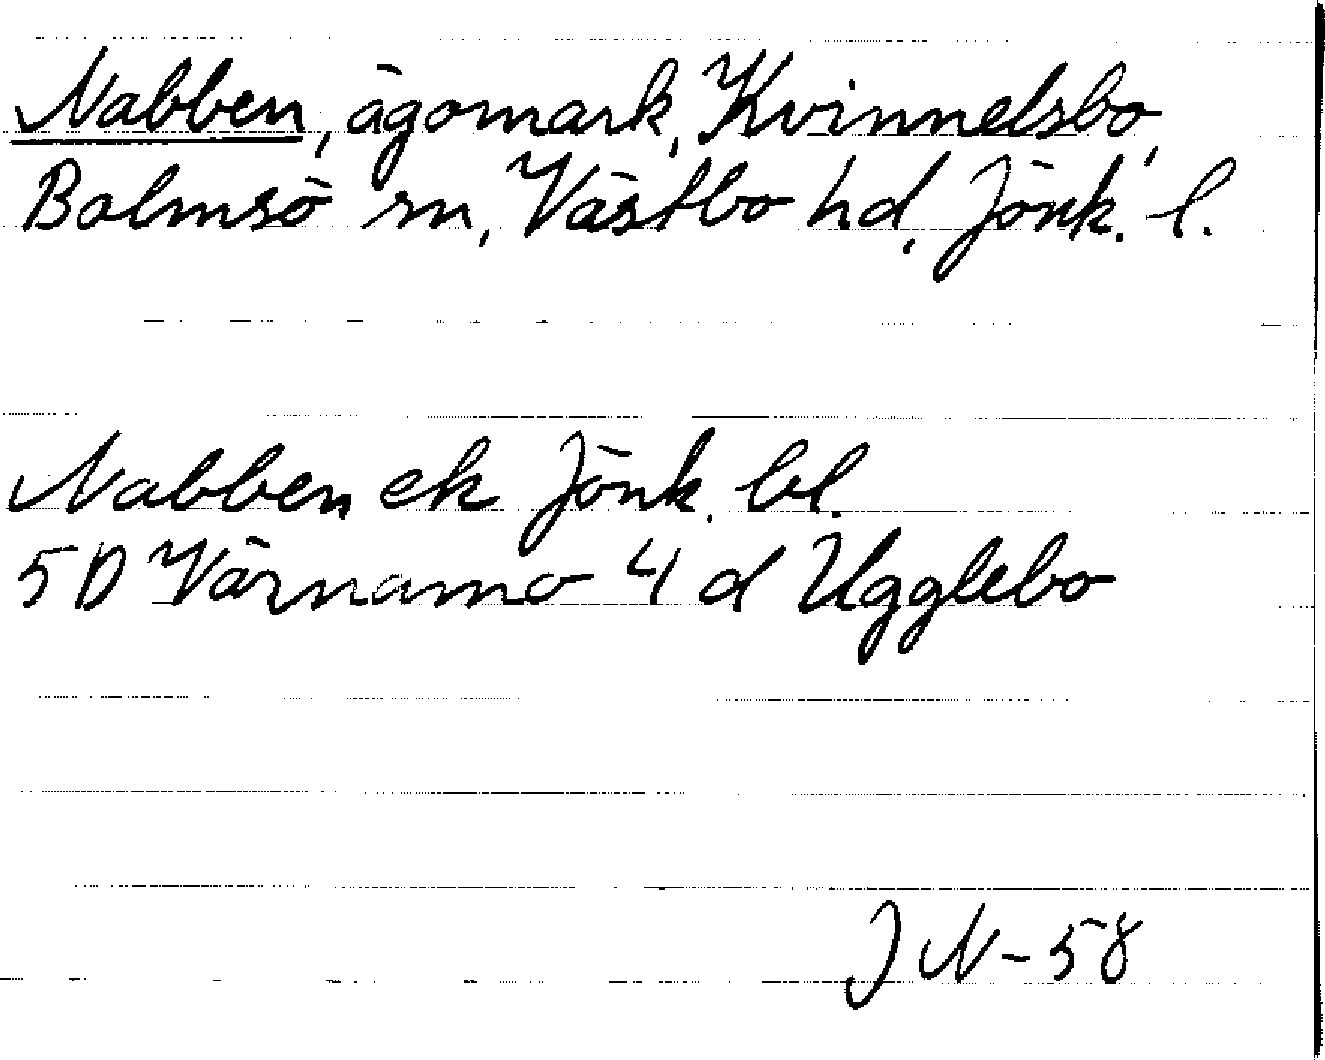 Nabben, ägomark, Kvinnelsbo,
Bolmsö sn, Västbo hd, Jönk. l.
Nabben ek Jönk. bl.
5D Värnamo 4 d Ugglebo
JN-58